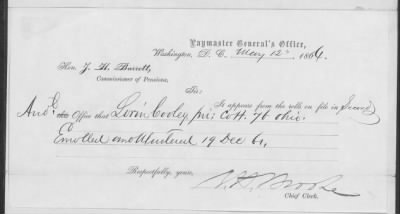 Paymaster General's Office,
Washington, D. C. May 12th 1864.
Hon. J. H. Barrett,
Commissioner of Pensions.
Sir:
It appears from the rolls on file in Second
Aud's Office that Lorin Cooley pri: Co H. 7th Ohio
Enrolled and Mustered 19 Dec 61,
Respectfully, yours,
Chief Clerk.